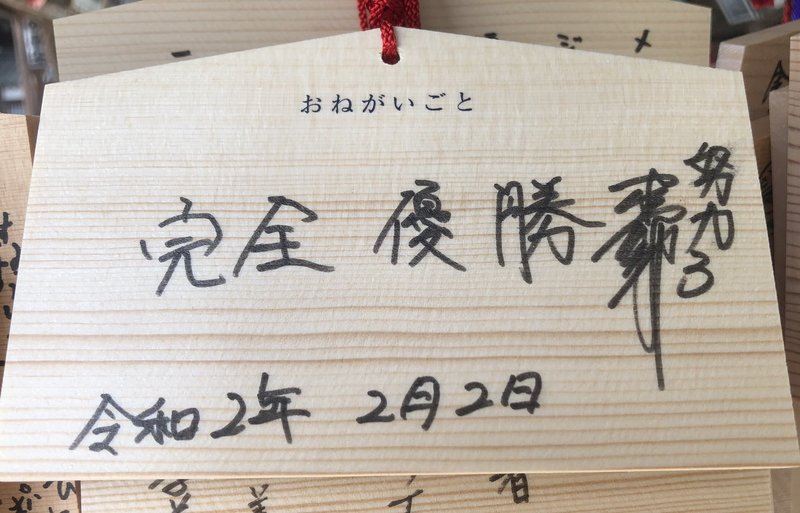 おねがいごと
完全優勝
努力
令和2年 2月2日